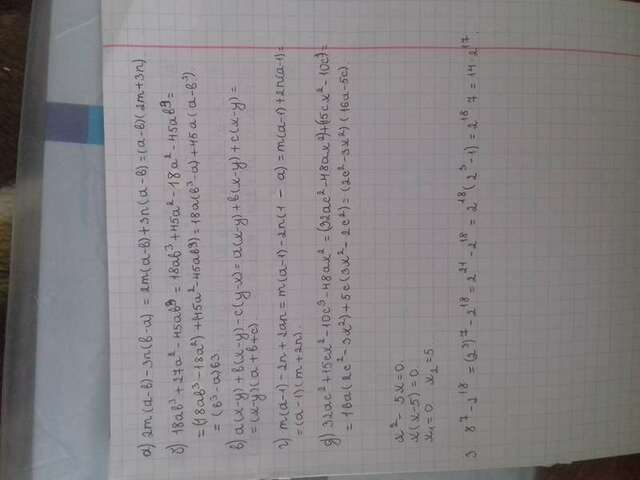 а) 2m(a-b)-3n(b-a) = 2m(a-b)+3n(a-b)=(a-b)(2m+3n)
б) 18ab³+27a²-45ab³ = 18ab³+45a²-18a²-45ab³=
=(18ab³-18a²)+(45a²-45ab³)=18a(b³-a)+45a(a-b³)
=(b³-a)63.
в) a(x-y)+b(x-y)-c(y-x)=a(x-y)+b(x-y)+c(x-y)=
=(x-y)(a+b+c).
г) m(a-1)-2n+2an=m(a-1)-2n(1-a)=m(a-1)+2n(a-1)=
=(a-1)(m+2n).
д) 32ac²+15cx²-10c³-48ax²=(32ac²-48ax²)+(15cx²-10c³)=
=16a(2c²-3x²)+5c(3x²-2c²)=(2c²-3x²)(16a-5c).
x²-5x=0.
x(x-5)=0.
x₁=0. x₂=5.
3. 8⁷-2¹⁸=(2³)⁷-2¹⁸=2²¹-2¹⁸=2¹⁸(2³-1)=2¹⁸·7=14·2¹⁷.